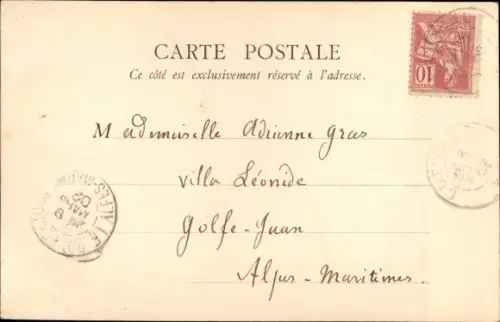 CARTE POSTALE
Ce côté est exclusivement réservé à l'adresse.
Mademoiselle Adrienne Gras
Villa Léonide
Golfe-Juan
Alpes-Maritimes.
10
02